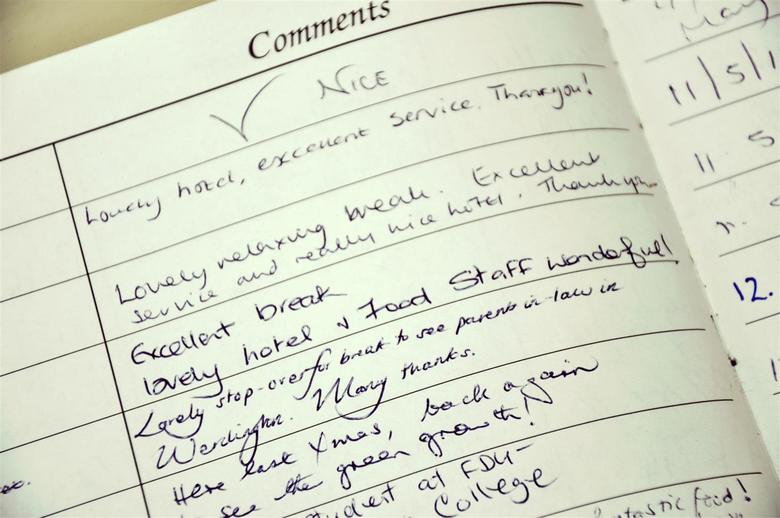 Comments
✓ NICE
Lovely hotel, excellent service. Thankyou!
Lovely relaxing break. Excellent
service and really nice hotel. Thank you
Excellent break
lovely hotel & Food Staff wonderful
Lovely stop-over for break to see parents-in-law in
Many thanks.
Here last Xmas, back again
see the green growth!
student at FDU-
College
fantastic food!
May
11/5/1
11 5
12.